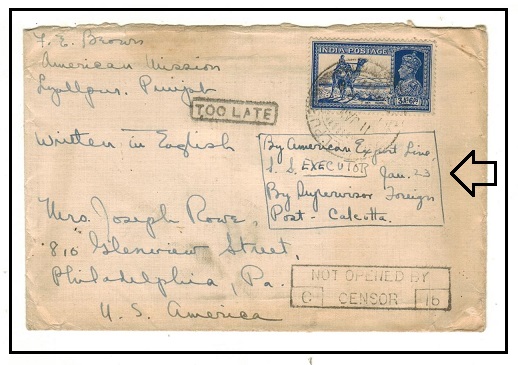 F. E. Brown
American Mission
Lyallpur. Punjab
INDIA POSTAGE
TOO LATE
Written in English
By American Export Line,
S. S. EXECUTOR Jan. 23
By Supervisor Foreign
Post - Calcutta.
Mrs. Joseph Rowe,
810 Glenview Street,
Philadelphia, Pa.
U. S. America
NOT OPENED BY
C CENSOR 16